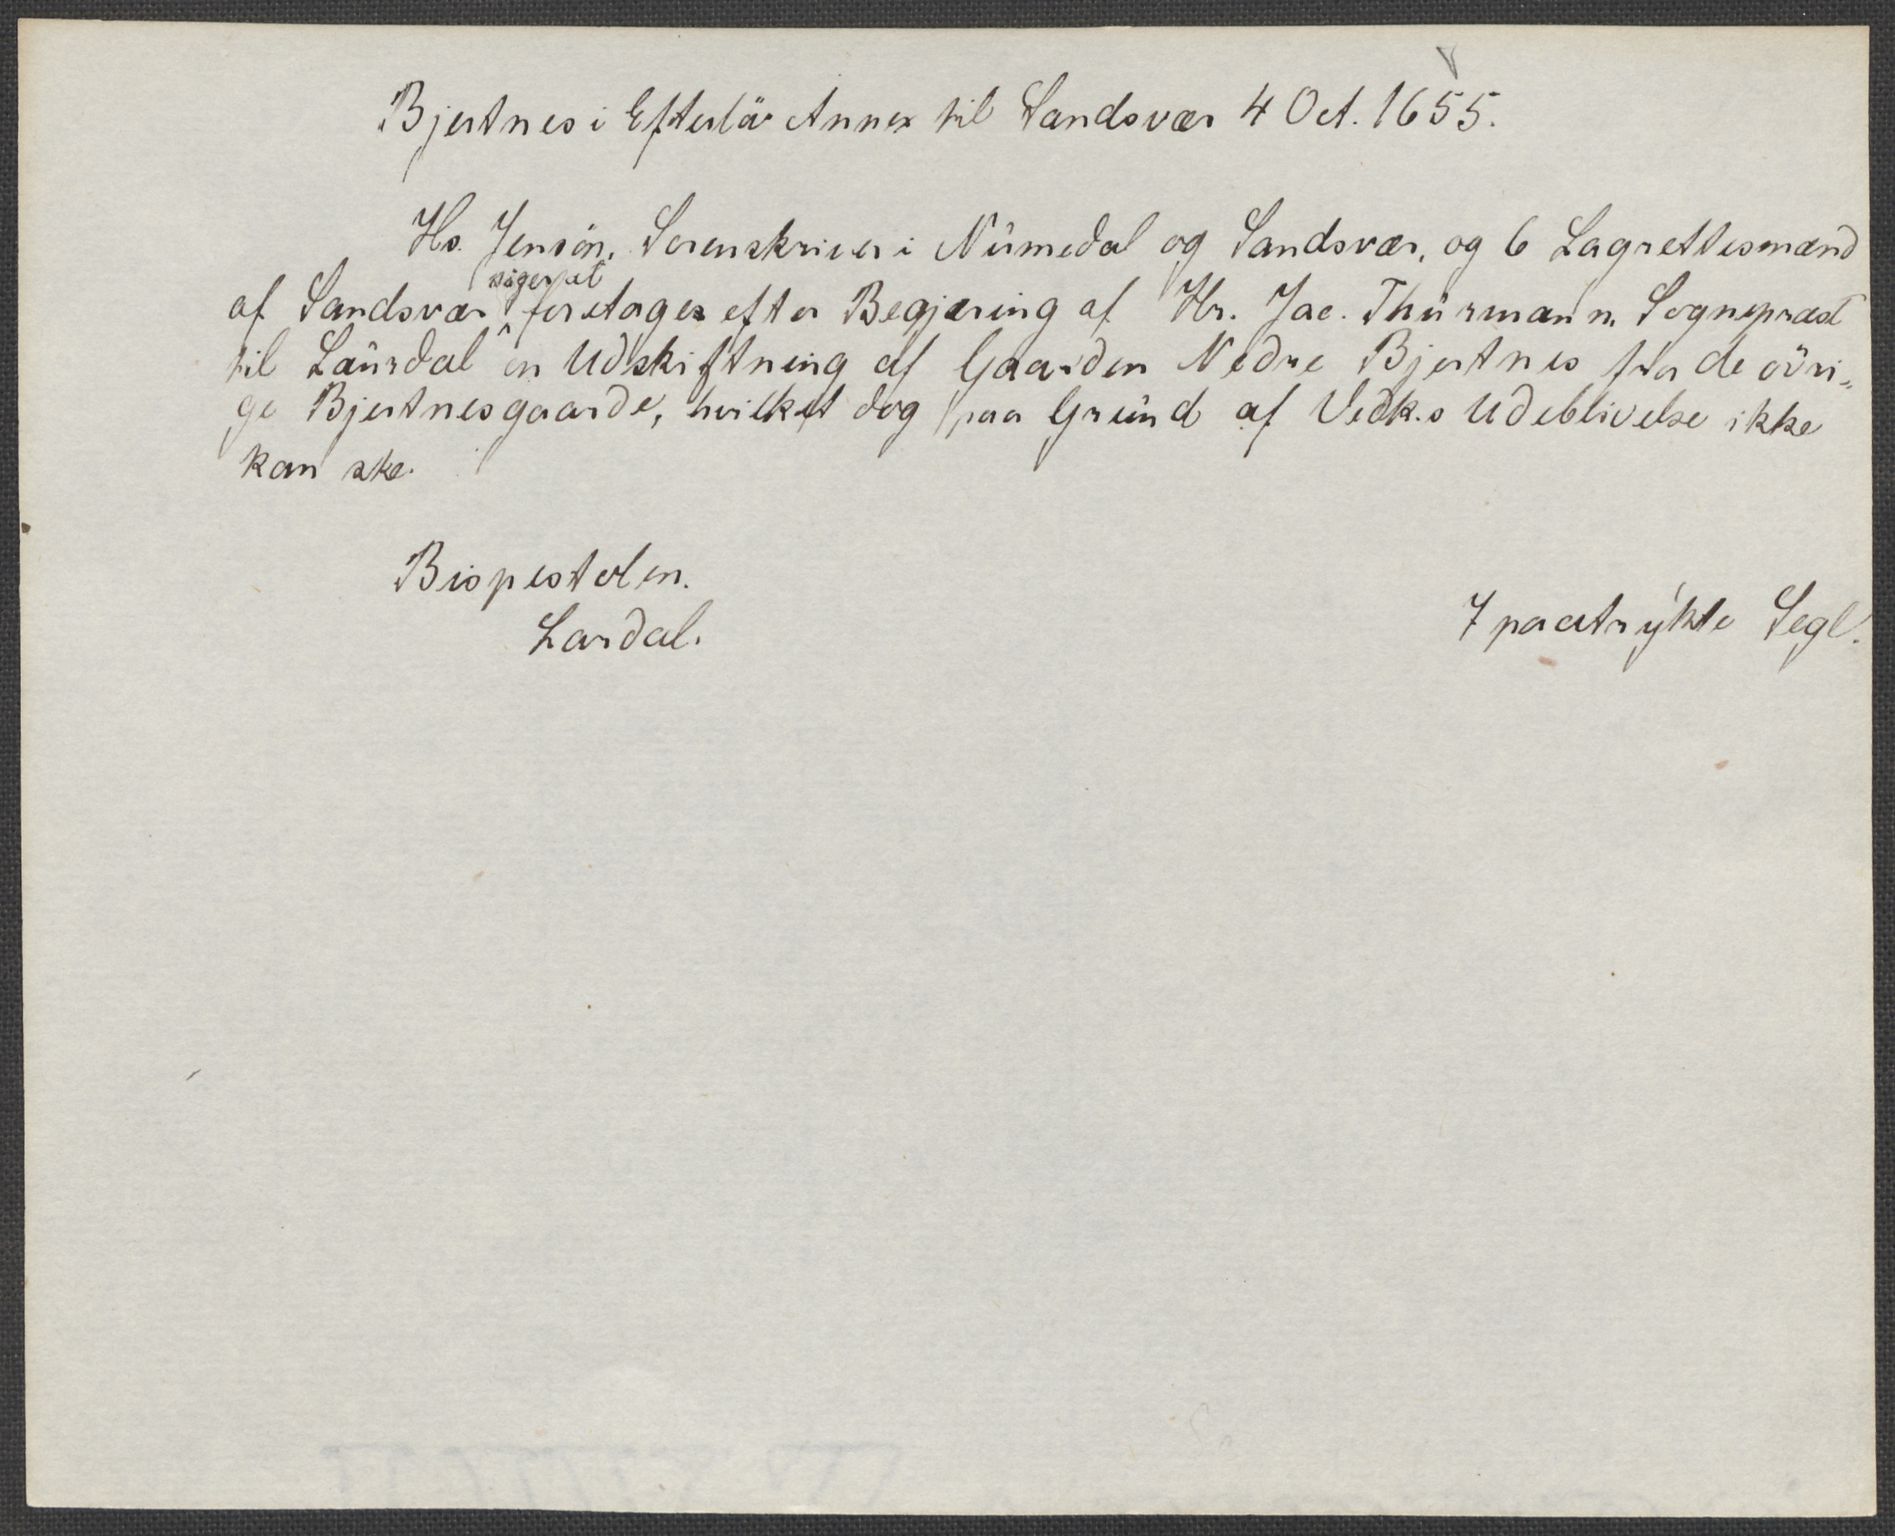 Bjertnes i Efterlöv Annex til Sandsvær 4 Oct. 1655.
Hs. Jensön, Sorenskriver i Nümedal og Sandsvær, og 6 Lagrettesmænd
siger at
af Sandsvær ^ foretages efter Begjæring af Hr. Jac. Thürmann, Sognepræst
til Laürdal en Udskiftning af Gaarden Nedre Bjertnes fra de övri„
ge Bjertnesgaarde, hvilket dog paa Gründ af Vedk.s Udeblivelse ikke
kan ske.
Bispestolen.
Lardal.
7 paatrykte Segl.